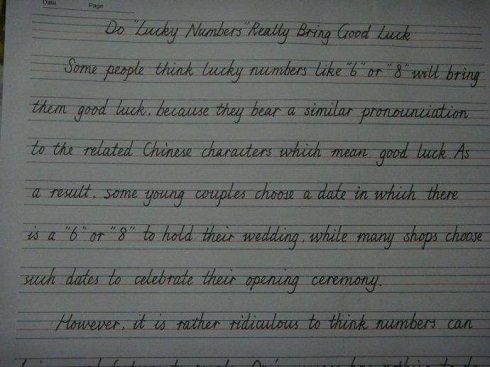 Date Page
Do "Lucky Numbers" Really Bring Good Luck
Some people think lucky numbers like "6" or "8" will bring
them good luck, because they bear a similar pronounciation
to the related Chinese characters which mean good luck. As
a result, some young couples choose a date in which there
is a "6" or "8" to hold their wedding, while many shops choose
such dates to celebrate their opening ceremony.
However, it is rather ridiculous to think numbers can